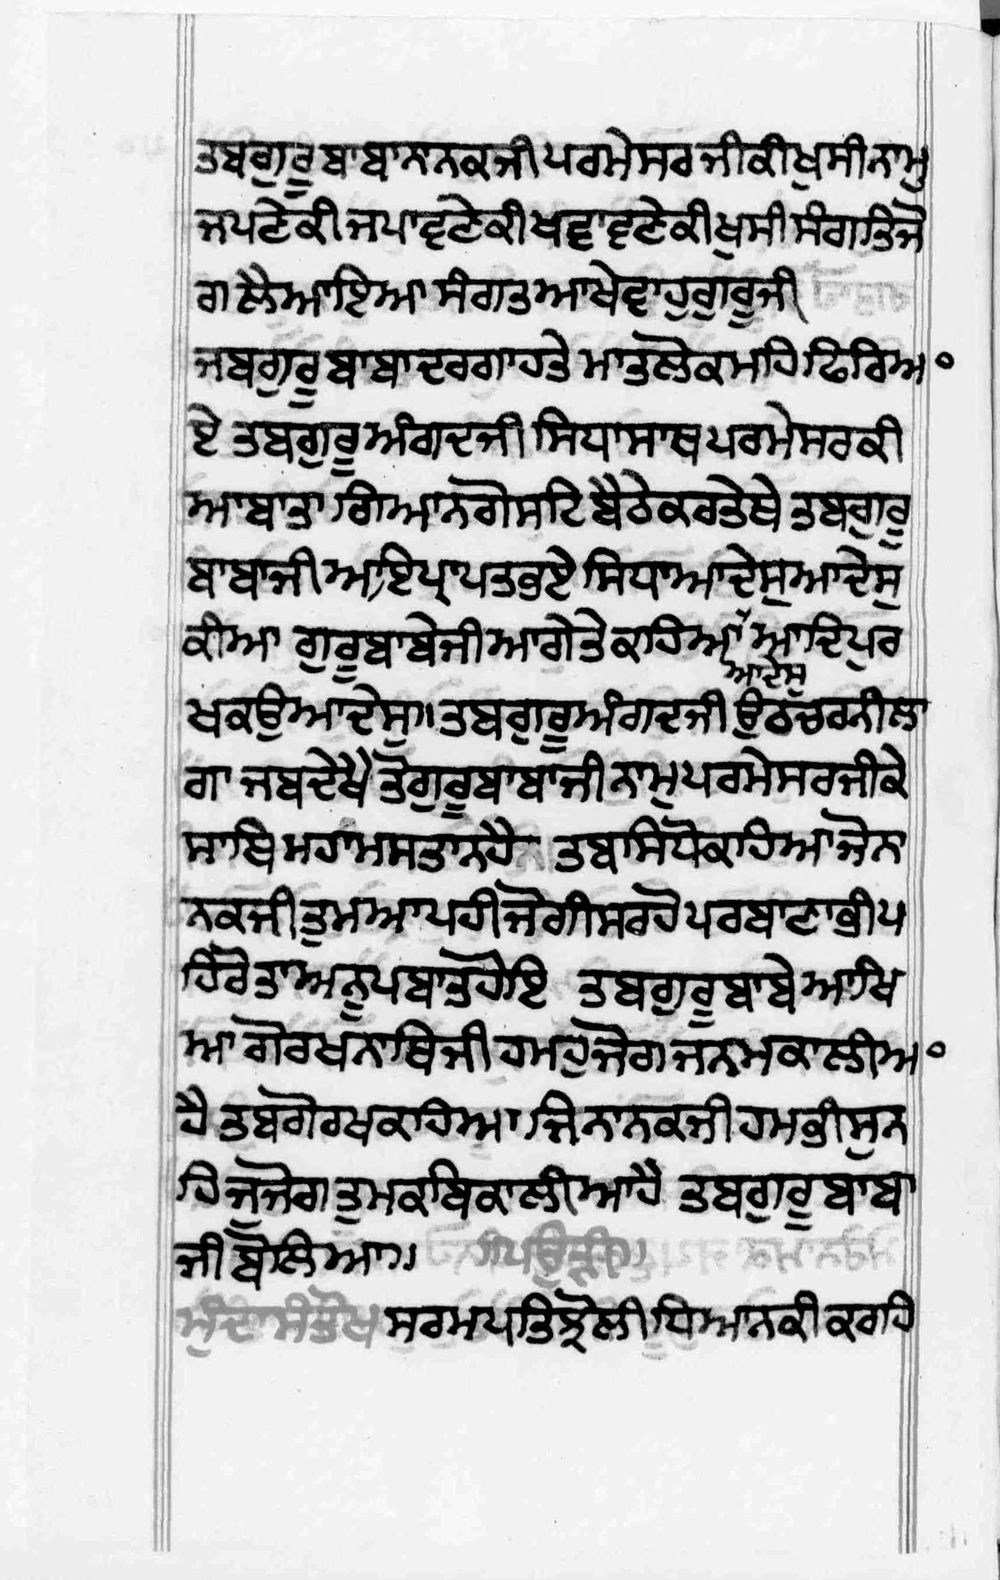 ਤਬਗੁਰੂਬਾਬਾਨਾਨਕਜੀਪਰਮੇਸਰਜੀਕੀਖੁਸੀਨਾਮੁ
ਜਪਣੇਕੀਜਪਾਵਣੇਕੀਖਵਾਵਣੇਕੀਖੁਸੀਸੰਗਤਿਜੋ
ਗਲੈਆਇਆਸੰਗਤਆਖੇਵਾਹੁਗੁਰੂਜੀ
ਜਬਗੁਰੂਬਾਬਾਦਰਗਾਹਤੇਮਾਤਲੋਕਮਹਿਫਿਰਿਆ
ਏ ਤਬਗੁਰੂਅੰਗਦਜੀਸਿਧਾਸਾਥਪਰਮੇਸਰਕੀ
ਆਬਾਤਾਗਿਆਨਗੋਸਟਿਬੈਠੇਕਰਤੇਥੇ ਤਬਗੁਰੂ
ਬਾਬਾਜੀਆਇਪ੍ਰਾਪਤਭਏਸਿਧਾਆਦੇਸੁਆਦੇਸੁ
ਕੀਆ ਗੁਰੂਬਾਬੇਜੀਆਗੇਤੇਕਾਹਿਆ ਆਦਿਪੁਰ
ਆਦੇਸੁ
ਖਕਉਆਦੇਸੁ॥ਤਬਗੁਰੂਅੰਗਦਜੀਉਠਚਰਨੀਲਾ
ਗਾ ਜਬਦੇਖੈਤੋਗੁਰੂਬਾਬਾਜੀਨਾਮੁਪਰਮੇਸਰਜੀਕੇ
ਸਾਥਿਮਹਾਮਸਤਾਨਹੈ ਤਬਸਿਧੋਕਾਹਿਆਜੋਨਾ
ਨਕਜੀਤੁਮਆਪਹੀਜੋਗੀਸਰਹੋਪਰਬਾਣਾਭੀਪ
ਹਿਰੋਤਾਅਨੂਪਬਾਤਹੋਇ ਤਬਗੁਰੂਬਾਬੇਆਖਿ
ਆਗੋਰਖਨਾਥਿਜੀਹਮਹੁਜੋਗਜਨਮਕਾਲੀਆ
ਹੈ ਤਬਗੋਰਖਕਾਹਿਆਜਿਨਾਨਕਜੀਹਮਭੀਸੁਨ
ਹਿਜੁਜੋਗਤੁਮਕਬਿਕਾਲੀਆਹੈ ਤਬਗੁਰੂਬਾਬਾ
ਜੀਬੋਲਿਆ॥
ਮੁੰਦਾਸੰਤੋਖਸਰਮਪਤਿਝੋਲੀਧਿਆਨਕੀਕਰਹਿ